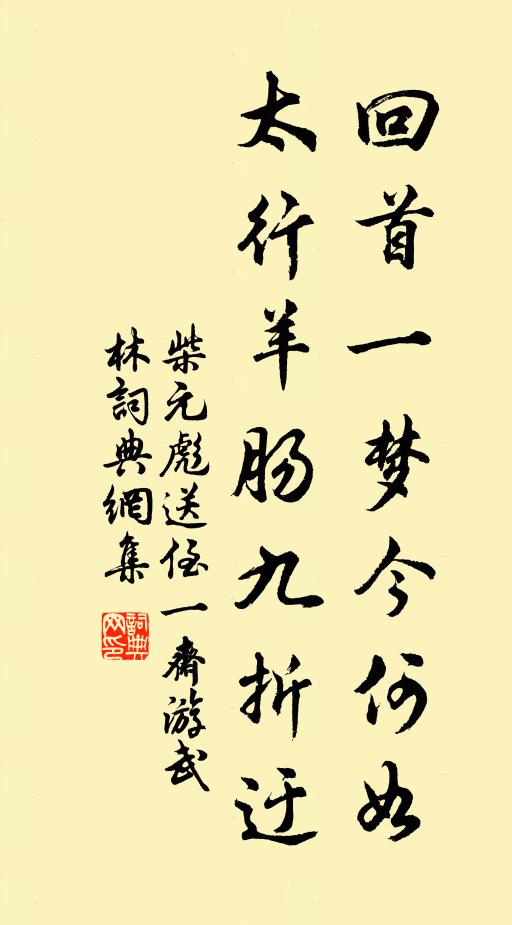 回首一梦今何如
太行羊肠九折迂
柴元彪送侄一齋游武
林詞典網集
詞典
网印